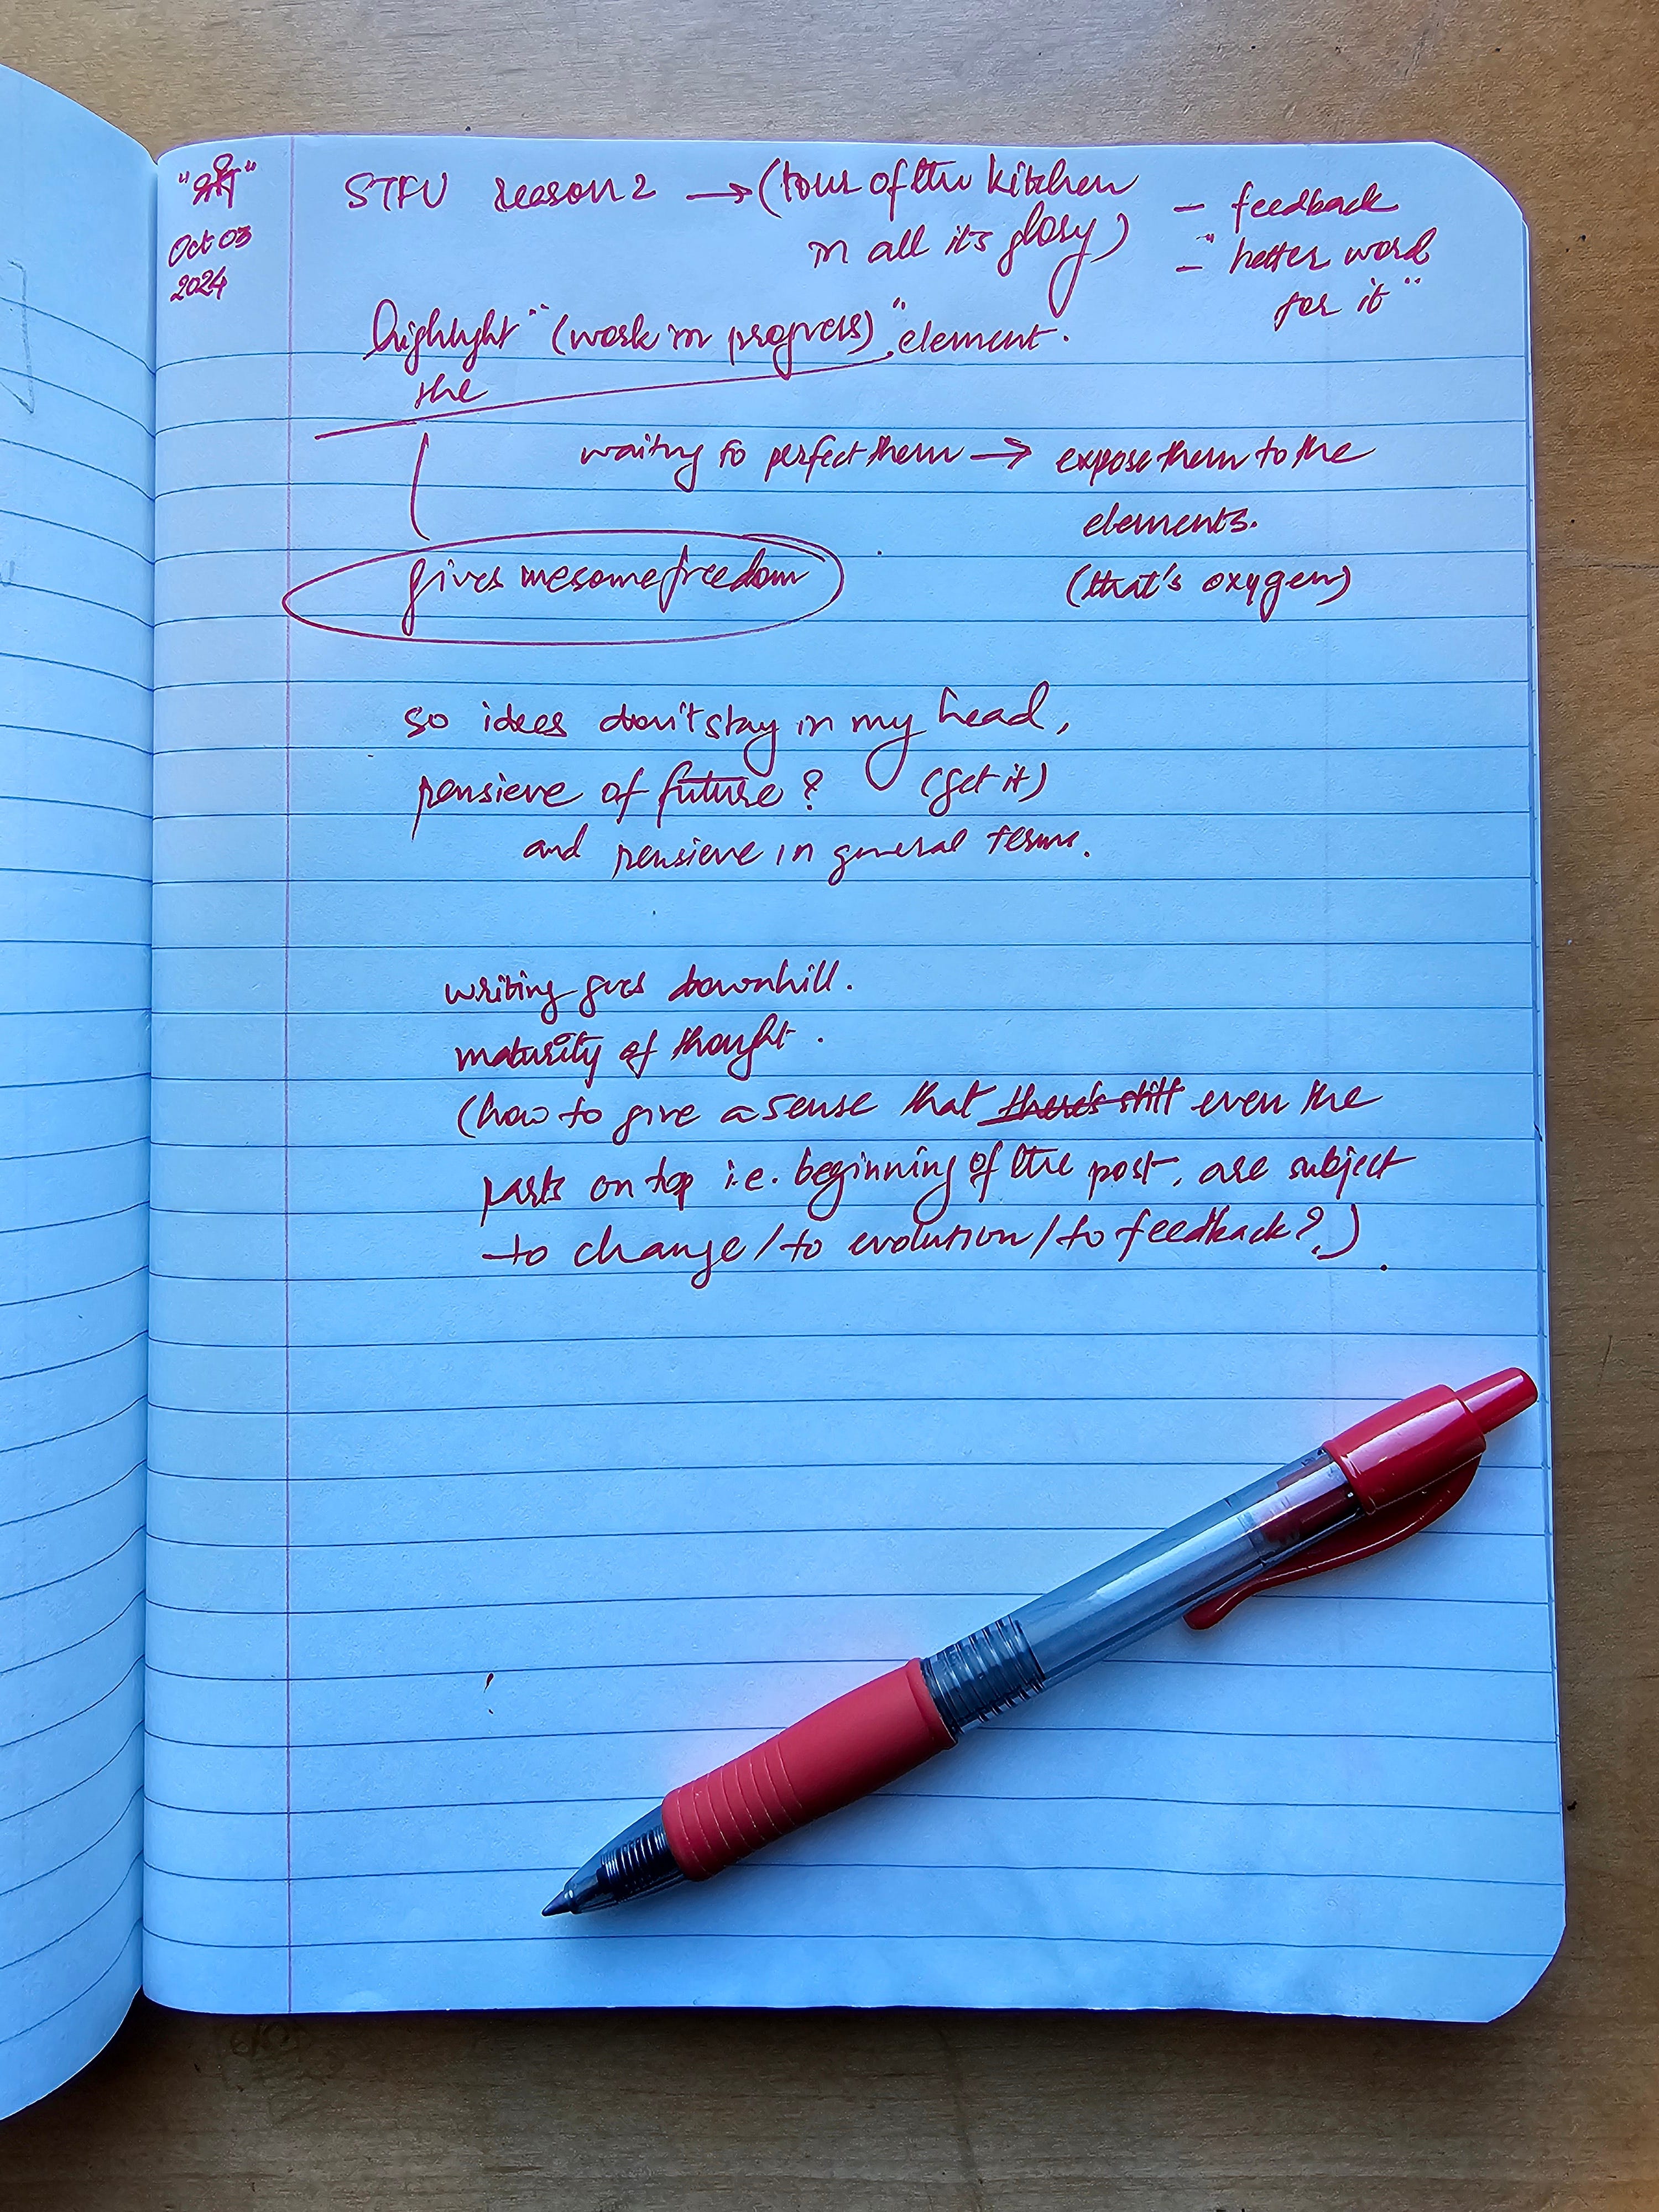 Oct 03
2024
STFU reason 2 → (tour of the kitchen
in all its glory)
- feedback
- "better word
for it"
highlight "(work in progress)" element.
the
waiting to perfect them → expose them to the
elements.
(that's oxygen)
gives me some freedom
so ideas don't stay in my head,
pensieve of future? (get it)
and pensieve in general terms.
writing goes downhill.
maturity of thought.
(how to give a sense that there's still even the
parts on top i.e. beginning of the post, are subject
to change/to evolution/to feedback?)